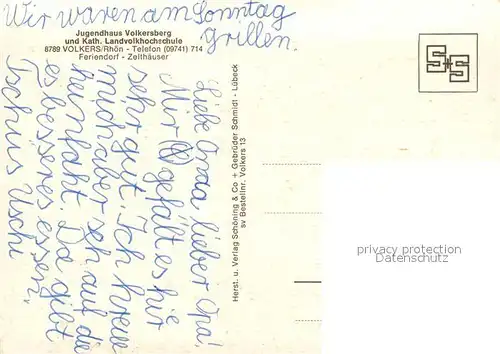 Wir waren am Sonntag
Grillen.
Jugendhaus Volkersberg
und Kath. Landvolkhochschule
8789 VOLKERS/Rhön - Telefon (09741) 714
Feriendorf - Zelthäuser
Liebe Oma, lieber Opa!
Mir gefällt es hir
sehr gut. Ich freue
mich aber seh auf die
heimfaht. Da gibt
es besseres essen.
Tschüs Uschi
Herst. u. Verlag Schöning & Co + Gebrüder Schmidt - Lübeck
sv Bestellnr. Volkers 13
S+S
privacy protection
Datenschutz